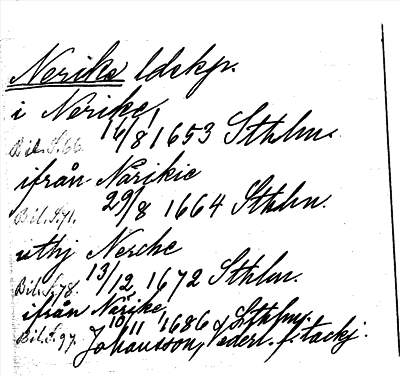 Nerike ldskp.
i Nerike
Bil. S. 66. 16/8 1653 Sthlm.
ifrån Närikie
Bil. S. 71. 29/8 1664 Sthlm.
uthj Nerche
Bil. S. 78. 13/12 1672 Sthlm.
ifrån Närike,
Bil. S. 97. 10/11 1686 Sthlm.
Johansson,